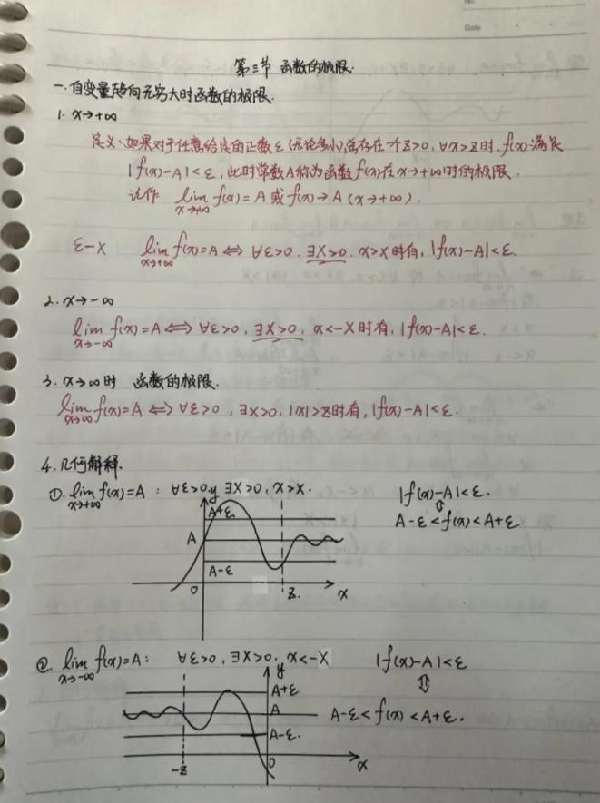 No.
Date
第三节 函数的极限.
一. 自变量趋向无穷大时函数的极限.
1. x→+∞
定义:如果对于任意给定的正数ε(无论多小)总存在一个Z>0, ∀x>Z时, f(x)满足
|f(x)-A|<ε, 此时常数A称为函数f(x)在x→+∞时的极限.
记作 lim x→+∞ f(x)=A 或 f(x)→A (x→+∞).
ε-X lim x→+∞ f(x)=A ⇔ ∀ε>0, ∃X>0, x>X时有, |f(x)-A|<ε.
2. x→-∞
lim x→-∞ f(x)=A ⇔ ∀ε>0, ∃X>0, x<-X时有, |f(x)-A|<ε.
3. x→∞时 函数的极限.
lim x→∞ f(x)=A ⇔ ∀ε>0, ∃X>0, |x|>Z时有, |f(x)-A|<ε.
4. 几何解释.
① lim x→+∞ f(x)=A : ∀ε>0, ∃X>0, x>X. |f(x)-A|<ε.
⇕
A-ε<f(x)<A+ε
y
A+ε
A
A-ε
0
Z.
x
② lim x→-∞ f(x)=A: ∀ε>0, ∃X>0, x<-X |f(x)-A|<ε
⇕
y
A+ε
A
A-ε<f(x)<A+ε.
A-ε.
0
-Z
x